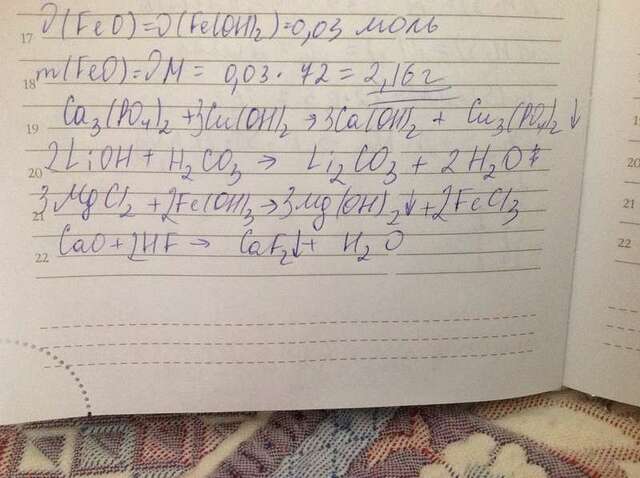 17 ν(FeO)=ν(Fe(OH)₂)=0,03 моль
18 m(FeO)=νM = 0,03·72=2,16г
19 Ca₃(PO₄)₂ + 3Cu(OH)₂ → 3Ca(OH)₂ + Cu₃(PO₄)₂↓
20 2LiOH + H₂CO₃ → Li₂CO₃ + 2H₂O
21 3MgCl₂ + 2Fe(OH)₃ → 3Mg(OH)₂↓ + 2FeCl₃
22 CaO + 2HF → CaF₂↓ + H₂O
20
21
22